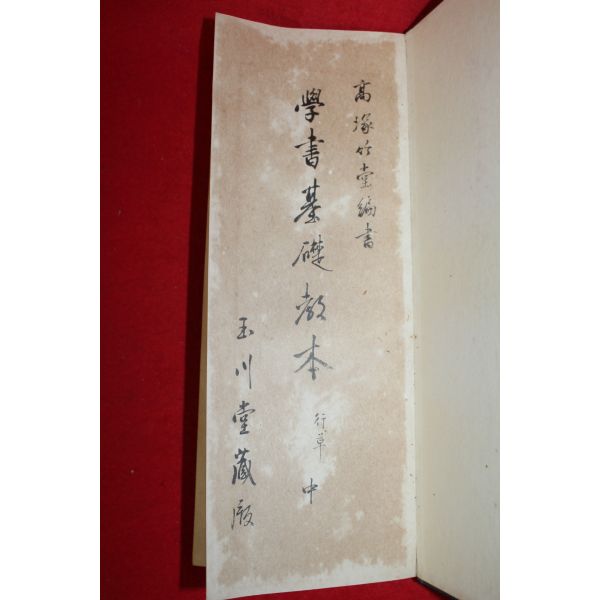 高塚竹堂編書
學書基礎教本 行草 中
玉川堂藏版